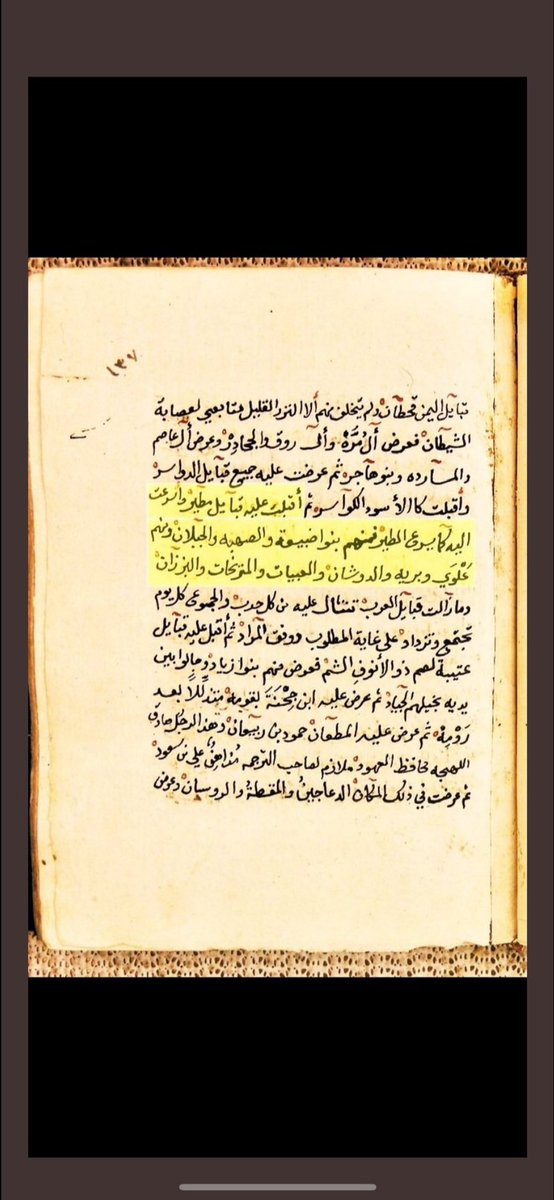 ١٣٧
قبايل اليمن قحطان ولم يتخلف منهم ألا النزر القليل متابعي لعصابة
الشيطان فعرض آل مرّه وآلى روق والجحادر وعرض آل عاصم
والمسارده وبنو هاجر ثم عرضت عليه جميع قبايل الدواسر
وأقبلت كالأسود الكواسر ثم أقبلت عليه قبايل مطير واسرعت
اليه كما يسرعى الطير فمنهم بنوا ضبيعة والصهبه والجبلان ومنهم
علوي وبريه والدوشان والعبيات والبرزان
وما زالت قبايل العرب تنثال عليه من كل حدب والجموع كل يوم
تجتمع وتزداد على غاية المطلوب ووفق المراد ثم أقبل عليه قبايل
عتيبة لهم ذو الأنوف الشم فعرض منهم بنوا زياد وجالوا بين
يديه بخيلهم الجياد ثم عرض عليه ابن محْنَة بقومه متذللًا بعد
رومه ثم عرض عليه المطعان حمود بن ربيعان وهذا الرجل صادق
اللهجه حافظ العهود ملازم لصاحب الترجمه علي بن سعود
ثم عرضت في ذلك المكان الدعاجينُ والمقطةُ والروسان وعرض